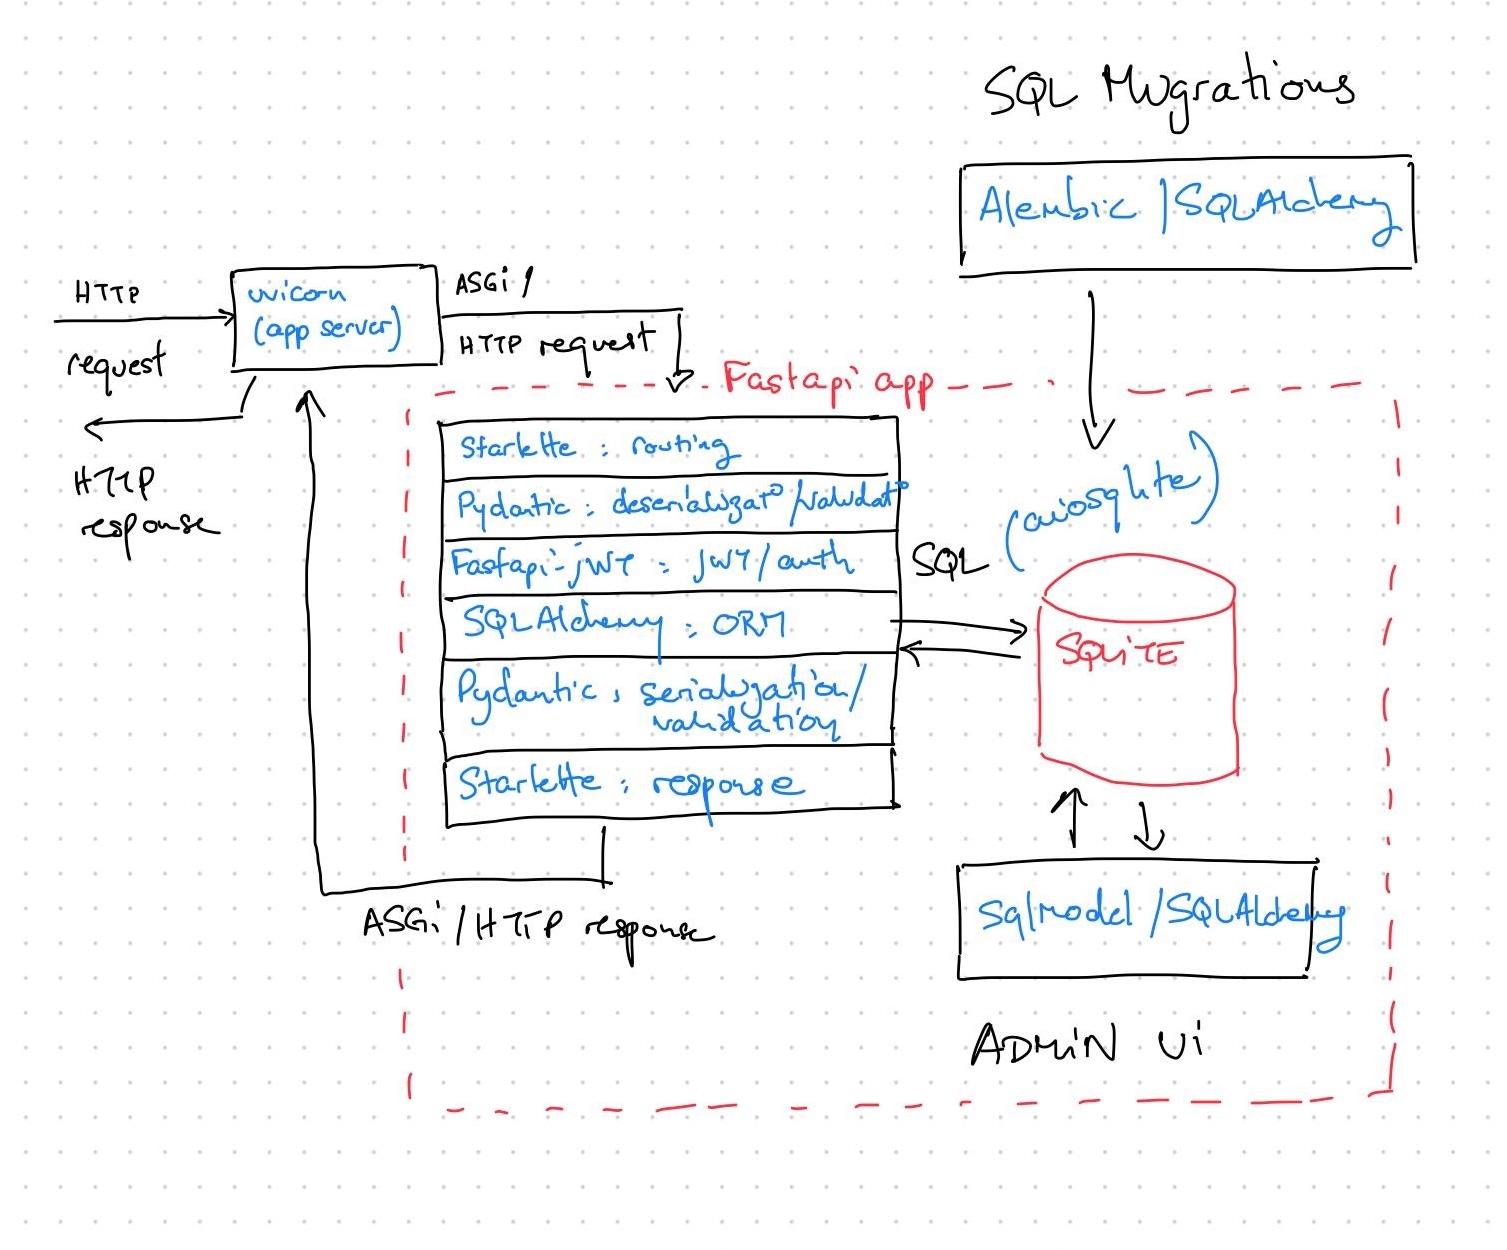 SQL Migrations
Alembic / SQLAlchemy
HTTP
request
uvicorn
(app server)
ASGi /
HTTP request
HTTP
response
Fastapi app
Starlette : routing
Pydantic : deserializat° / validat°
Fastapi-jWT : JWT / auth
SQLAlchemy : ORM
Pydantic : serialization /
validation
Starlette : response
SQL
(aiosqlite)
SQLiTE
ASGi / HTTP response
Sqlmodel / SQLAlchemy
ADMiN Ui